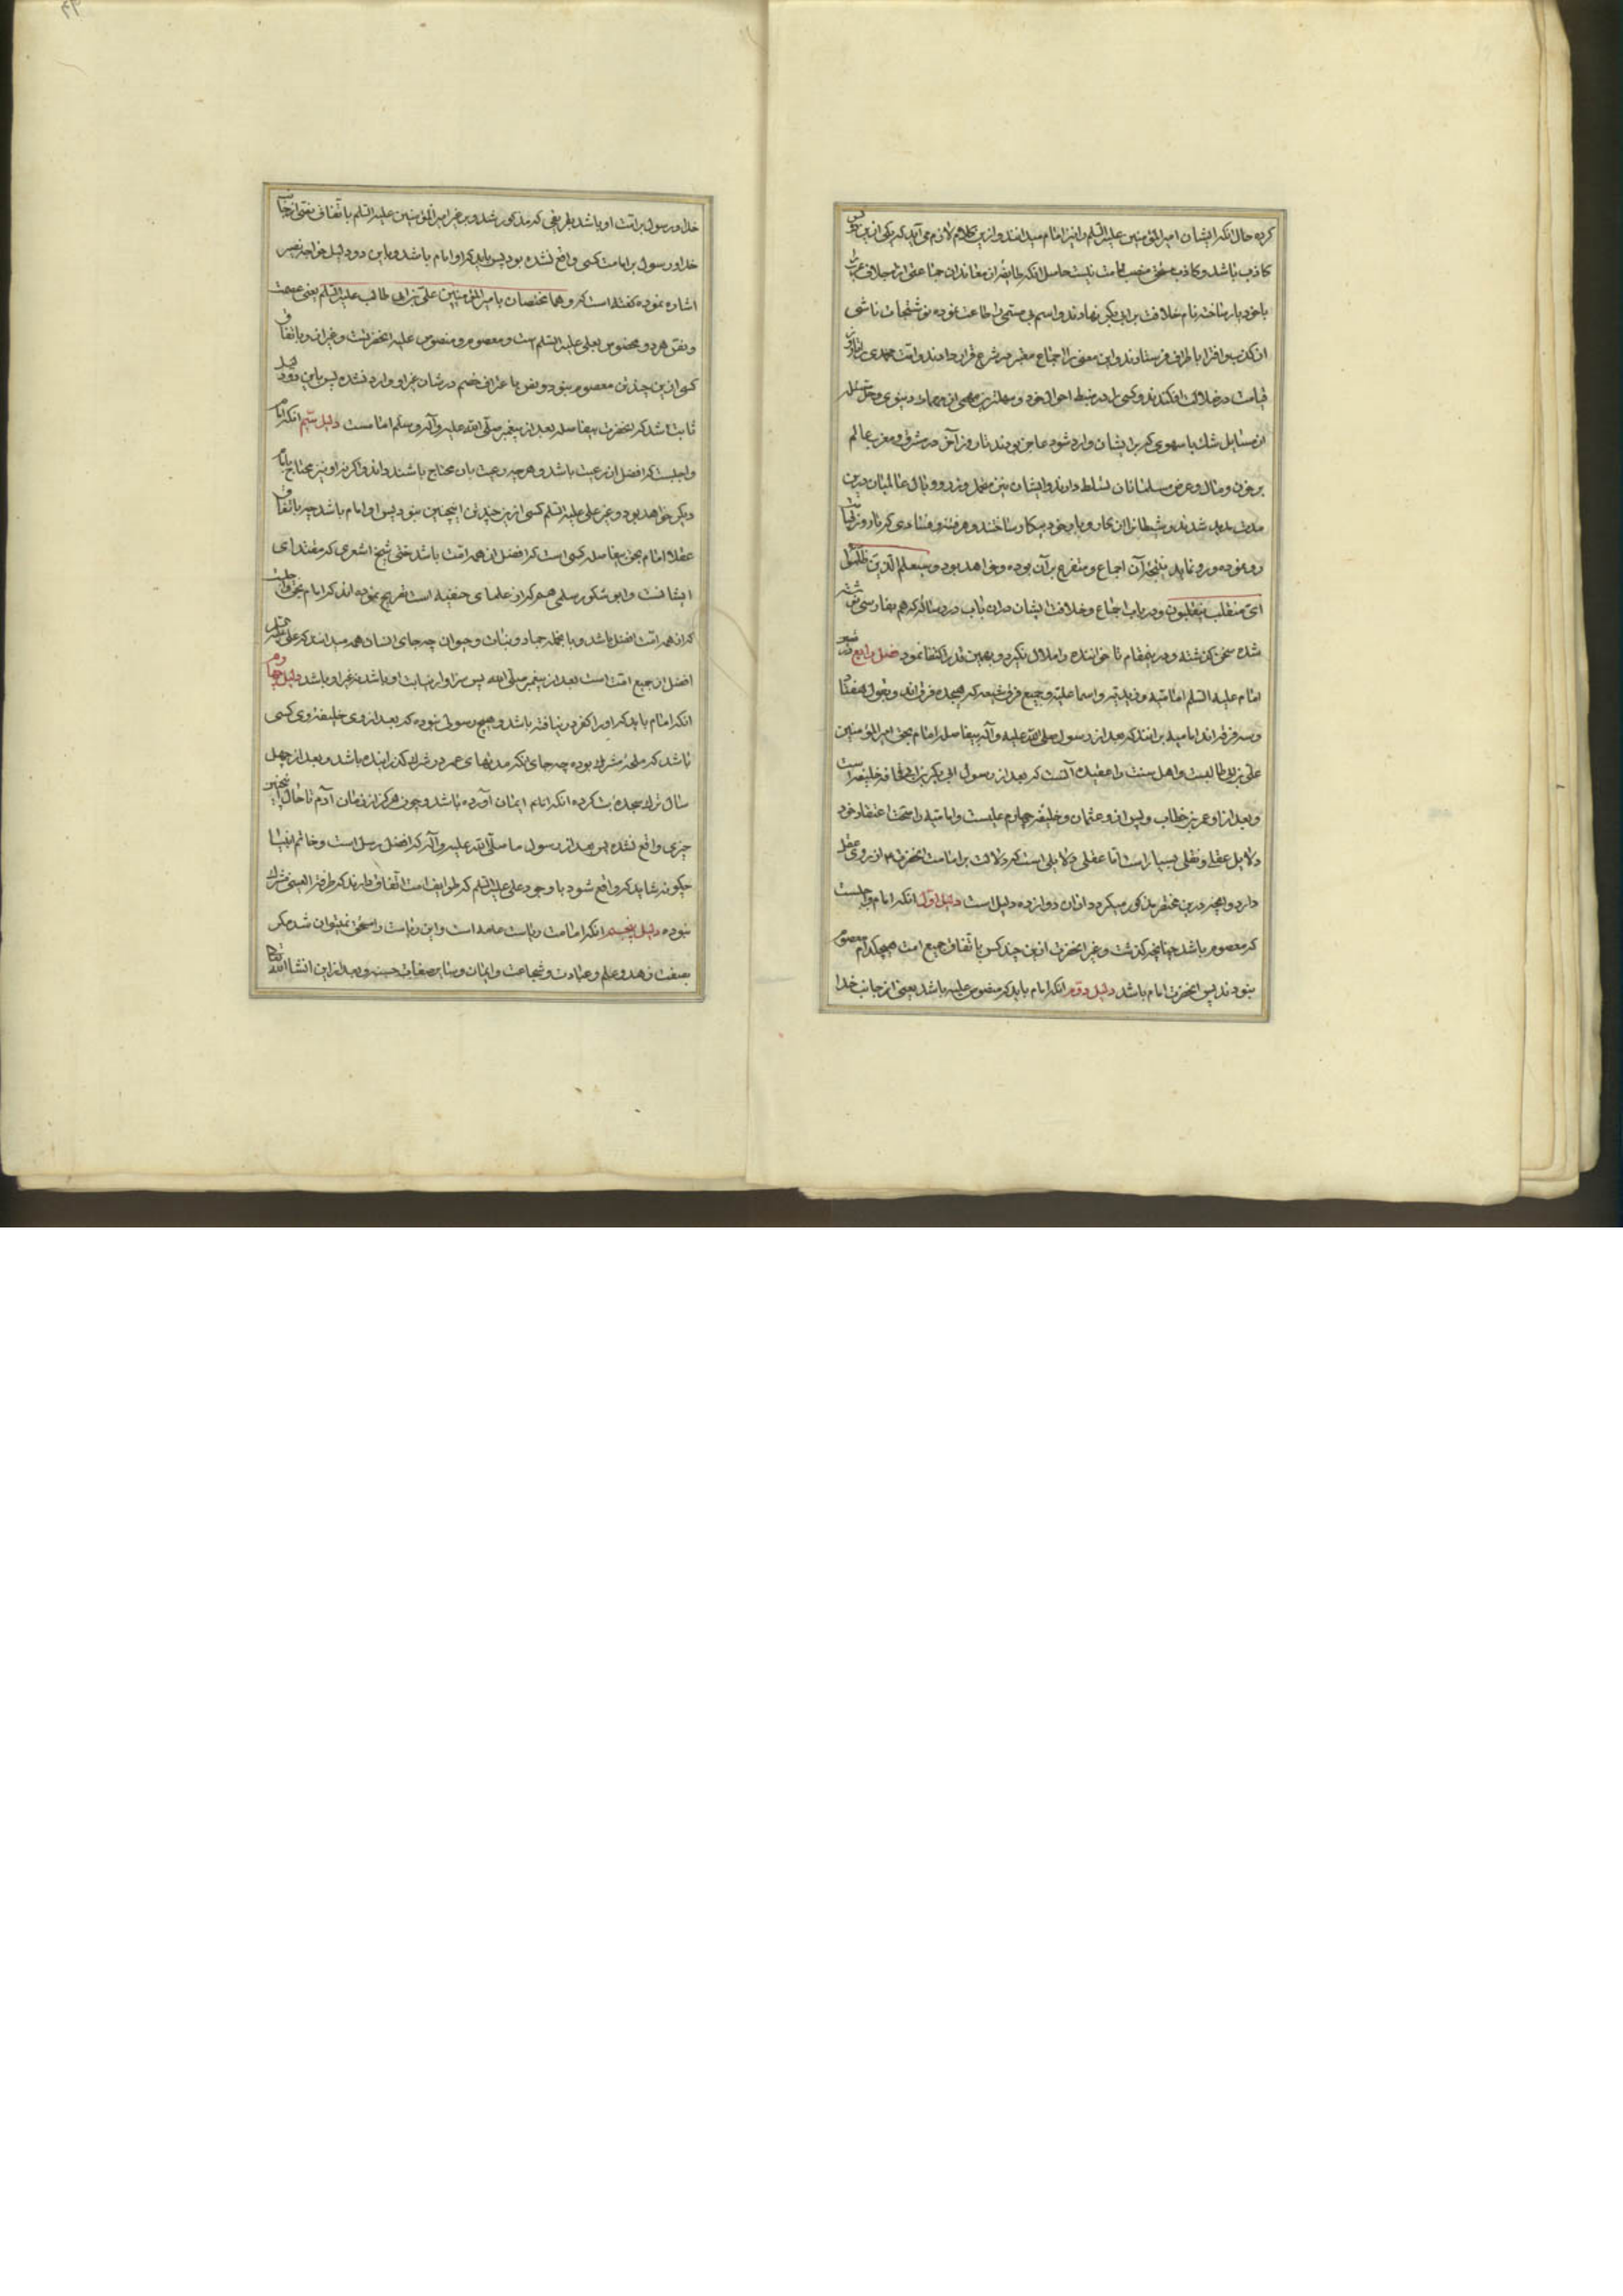 کرده حال انکه ایشان امیر المؤمنین علیه السلم را نیز امام میدانند و ازین کلام لازم می آید که یکی ازین
کاذب باشد و کاذب مستحق منصب امامت نیست حاصل انکه طایفه از معاندان
با خود یار ساخته نام خلافت بر ابی بکر نهادند و اسم بی مسمی را طاعت نموده نوشتجات ناشی
از کذب و افترا باطراف فرستادند و این معنی را اجماع معتبر در شرع قرار دادند و امت محمدی را تا روز
قیامت در ضلالت افکندند و کسی که در ضبط احوال خود و سهلترین مهمی از مهمات دنیوی و حل مسئله
از مسایل شک یا سهوی که بر ایشان وارد شود عاجز بودند تا روز آخر در مشرق و مغرب عالم
بر خون و مال و عرض مسلمانان تسلط دادند و ایشان نیز متحمل وزر و وبال عالمیان درین
مدت مدید شدند و شیطان را این کار و بار خود بیکار ساختند و هر فتنه و فسادی که تا روز قیامت
رو نموده و رو نماید نتیجه آن اجماع و متفرع بر آن بوده و خواهد بود و سیعلم الذین ظلموا
ای منقلب ینقلبون و در باب اجماع و خلافت ایشان دران باب در رساله که هم بفارسی نوشته
شده سخن گذشته و درینمقام تا خواننده را ملال نگیرد و بهمین قدر اکتفا نمود فصل رابع
امام علیه السلم امامیه و زیدیه و اسماعلیه و جمیع فرق شیعه که هیجده فرقه اند و بقول هفتاد
و سه فرقه اند امامیه برانند که بعد از رسول صلی الله علیه و آله بیفاصله امام بحق امیر المؤمنین
علی بن ابی طالبست و اهل سنت را عقیده آنست که بعد از رسول ابی بکر بن ابی قحافه خلیفه است
و بعد از او عمر بن خطاب و پس از او عثمان و خلیفه چهارم علیست و امامیه را بر صحت اعتقاد خود
دلایل عقلی و نقلی بسیار است اما عقلی دلایلی است که دلالت بر امامت انحضرت از روی عقل
دارد و انچه درین مختصر مذکور میکردد ازان دوازده دلیل است دلیل اول انکه امام واجبست
که معصوم باشد چنانچه گذشت و غیر انحضرت ازین چند کس باتفاق جمیع امت هیچکدام معصوم
نبودند پس انحضرت امام باشد دلیل دوم انکه امام باید که منصوص علیه باشد یعنی از جانب خدا
خدا و رسول بر امت او باشد بطریقی که مذکور شد و بر غیر امیر المؤمنین علیه السلم باتفاق نصی از جانب
خدا و رسول بر امامت کسی واقع نشده بود پس باید که او امام باشد و باین دو دلیل خواجه نصیر
اشاره نموده گفته است که و هما مختصان بامیر المؤمنین علی بن ابی طالب علیه السلم یعنی عصمت
و نص هر دو مخصوص بعلی علیه السلم است و معصوم و منصوص علیه انحضرتست و غیر او باتفاق
کسی ازین چند تن معصوم نبود و نص باعتراف خصم در شان غیر او وارد نشده پس باین دو دلیل
ثابت شد که انحضرت بیفاصله بعد از پیغمبر صلی الله علیه و آله و سلم امامست دلیل سیم انکه امام
واجبست که افضل از رعیت باشد و هر چه رعیت بان محتاج باشند داند و اگر نه او نیز محتاج بامام
دیکر خواهد بود و غیر علی علیه السلم کسی ازین چند تن اینچنین نبود پس او امام باشد چه باتفاق
عقلا امام بحق بیفاصله کسی است که افضل از همه امت باشد حتی شیخ اشعری که مقتدای
ایشانست و ابو شکور سلمی هم که از علمای حنفیه است تصریح نموده اند که امام بحق واجبست
که از همه امت افضل باشد و بالجمله جماد و نبات و حیوان چه جای انسان همه میدانند که علی
افضل از جمیع امت است بعد از پیغمبر صلی الله پس سزاوار نیابت او باشد نه غیر او باشد دلیل چهارم
انکه امام باید که او را کفر در نیافته باشد و هیچ رسولی نبوده که بعد از وی خلیفه وی کسی
باشد که ملحد مشرک بوده چه جای انکه مدتهای عمر در شرک گذرانیده باشد و بعد از چهل
سال ترک سجده بت کرده انکه امام ایمان آورده باشد و چون هرکز از زمان آدم تا حال اینچنین
چیزی واقع نشده پس بعد از رسول ما صلی الله علیه و آله که افضل رسل است و خاتم انبیا
چکونه شاید که واقع شود با وجود علی علیه السلم که طوایف امت اتفاق دارند که طرفة العینی مشرک
نبوده دلیل پنجم انکه امامت ریاست عامه است و این ریاست را مستحق نمیتوان شد مکر
بصفت زهد و علم و عبادت و شجاعت و ایمان و سایر صفات حسنه و بعد ازین انشا الله تعالی